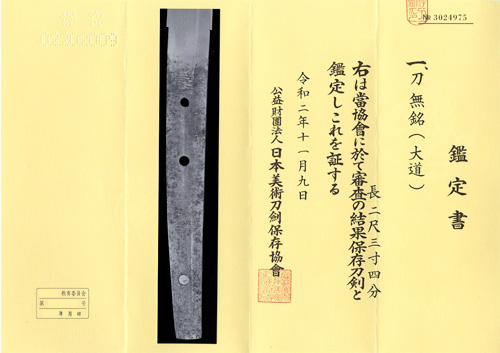 № 3024975
鑑定書
一、刀 無銘(大道)
長二尺三寸四分
右は當協會に於て審査の結果保存刀剣と
鑑定しこれを証する
令和二年十一月九日
公益財團法人 日本美術刀劍保存協會
教育委員会
第 号